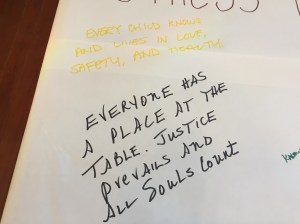 EVERY CHILD KNOWS
AND LIVES IN LOVE,
SAFETY, AND HEALTH
EVERYONE HAS
A PLACE AT THE
TABLE. JUSTICE
PREVAILS AND
ALL SOULS COUNT